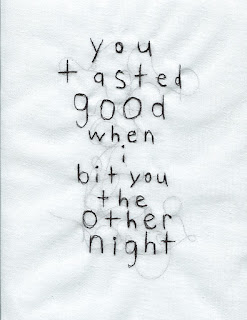 you
tasted
good
when
i
bit you
the
other
night